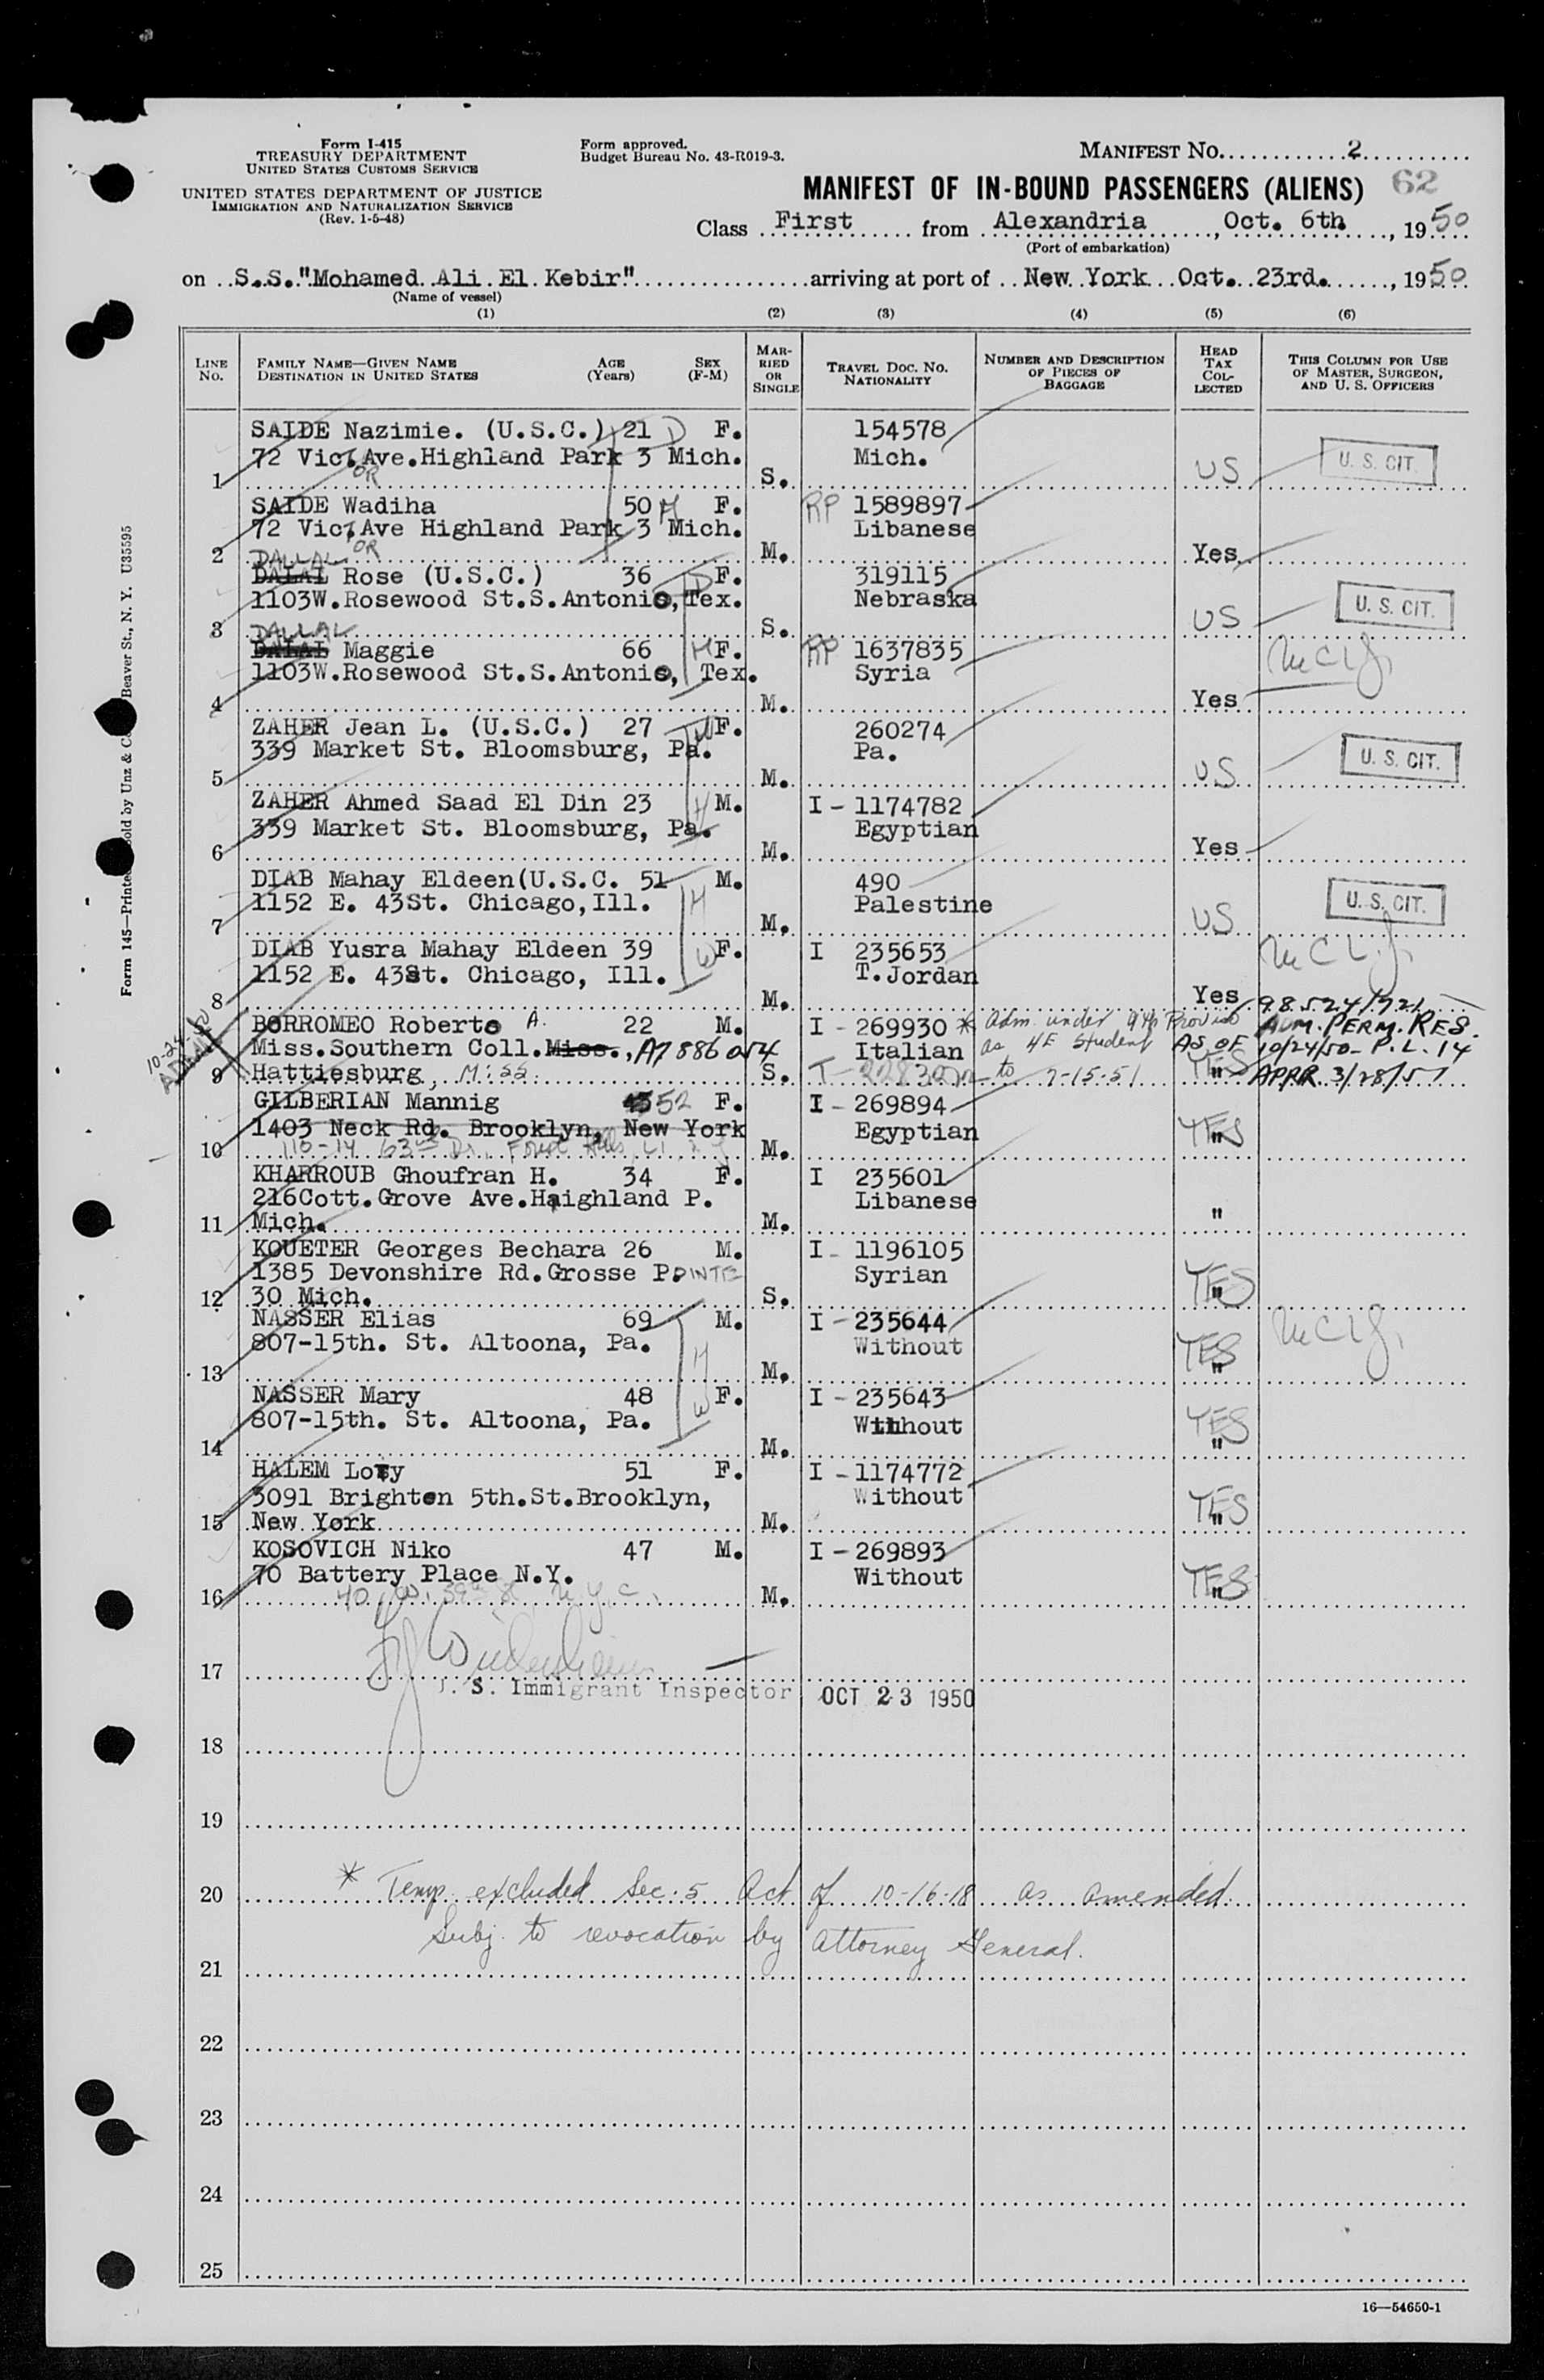 Form I-415
TREASURY DEPARTMENT
UNITED STATES CUSTOMS SERVICE
UNITED STATES DEPARTMENT OF JUSTICE
IMMIGRATION AND NATURALIZATION SERVICE
(Rev. 1-5-48)
Form approved.
Budget Bureau No. 43-R019-3.
MANIFEST No. 2
MANIFEST OF IN-BOUND PASSENGERS (ALIENS) 62
Class First from Alexandria, Oct. 6th, 1950
(Port of embarkation)
on S.S."Mohamed Ali El Kebir" arriving at port of New York Oct. 23rd., 1950
(Name of vessel)
(1) (2) (3) (4) (5) (6)
LINE No.
FAMILY NAME—GIVEN NAME AGE (Years) SEX (F-M)
DESTINATION IN UNITED STATES
MARRIED OR SINGLE
TRAVEL DOC. NO. NATIONALITY
NUMBER AND DESCRIPTION OF PIECES OF BAGGAGE
HEAD TAX COLLECTED
THIS COLUMN FOR USE OF MASTER, SURGEON, AND U. S. OFFICERS
SAIDE Nazimie. (U.S.C.) 21 D F. 154578
72 Vic. Ave.Highland Park 3 Mich. Mich.
1 OR S. US U. S. CIT.
SAIDE Wadiha 50 M F. RP 1589897
72 Vic. Ave Highland Park 3 Mich. Libanese
2 OR M. Yes
DALLAL
DALAL Rose (U.S.C.) 36 D F. 319115
1103W.Rosewood St.S.Antonio, Tex. Nebraska
3 S. US U. S. CIT.
DALLAL
DALAL Maggie 66 M F. RP 1637835
1103W.Rosewood St.S.Antonio, Tex. Syria
4 M. Yes
ZAHER Jean L. (U.S.C.) 27 W F. 260274
339 Market St. Bloomsburg, Pa. Pa.
5 M. US U. S. CIT.
ZAHER Ahmed Saad El Din 23 H M. I - 1174782
339 Market St. Bloomsburg, Pa. Egyptian
6 M. Yes
DIAB Mahay Eldeen(U.S.C. 51 M. 490
1152 E. 43St. Chicago,Ill. H Palestine
7 M. US U. S. CIT.
DIAB Yusra Mahay Eldeen 39 W F. I 235653
1152 E. 43St. Chicago, Ill. T.Jordan
8 M. Yes 98524/721
10-24-50
BORROMEO Roberto A. 22 M. I - 269930 * Adm. under 9th Proviso ADM. PERM. RES.
Miss.Southern Coll.Miss., A7 886 054 Italian as 4E Student AS OF 10/24/50- P.L. 14
9 Hattiesburg, Miss. S. to 7-15-51 YES " APPR. 3/28/57
GILBERIAN Mannig 52 F. I - 269894
1403 Neck Rd. Brooklyn, New York Egyptian
10 110-14 63rd Dr., Forest Hills, L.I. M. YES "
KHARROUB Ghoufran H. 34 F. I 235601
216Cott.Grove Ave.Haighland P. Libanese
11 Mich. M. "
KOUETER Georges Bechara 26 M. I - 1196105
1385 Devonshire Rd.Grosse POINTE Syrian
12 30 Mich. S. YES "
NASSER Elias 69 M. I - 235644
807-15th. St. Altoona, Pa. H Without
13 M. YES "
NASSER Mary 48 F. I - 235643
807-15th. St. Altoona, Pa. W Without
14 M. YES "
HALEM Loty 51 F. I - 1174772
3091 Brighton 5th.St.Brooklyn, Without
15 New York M. YES "
KOSOVICH Niko 47 M. I - 269893
70 Battery Place N.Y. Without
16 40 W. 39th St. N.Y.C. M. YES "
17
U. S. Immigrant Inspector OCT 23 1950
18
19
20 * Temp excluded Sec. 5 Act of 10-16-18 as amended.
Subj. to revocation by Attorney General.
21
22
23
24
25
16—54650-1
Form 145—Printed Sold by Unz & Co Beaver St., N. Y. U35595